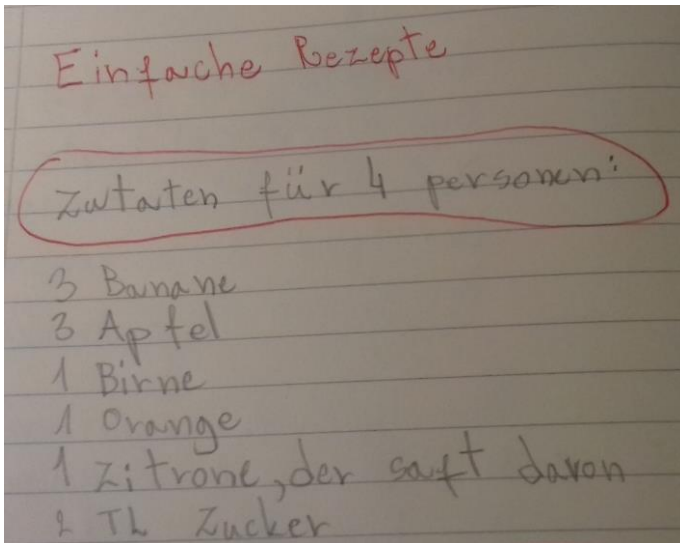 Einfache Rezepte
Zutaten für 4 personen:
3 Banane
3 Apfel
1 Birne
1 Orange
1 Zitrone, der saft davon
2 TL Zucker